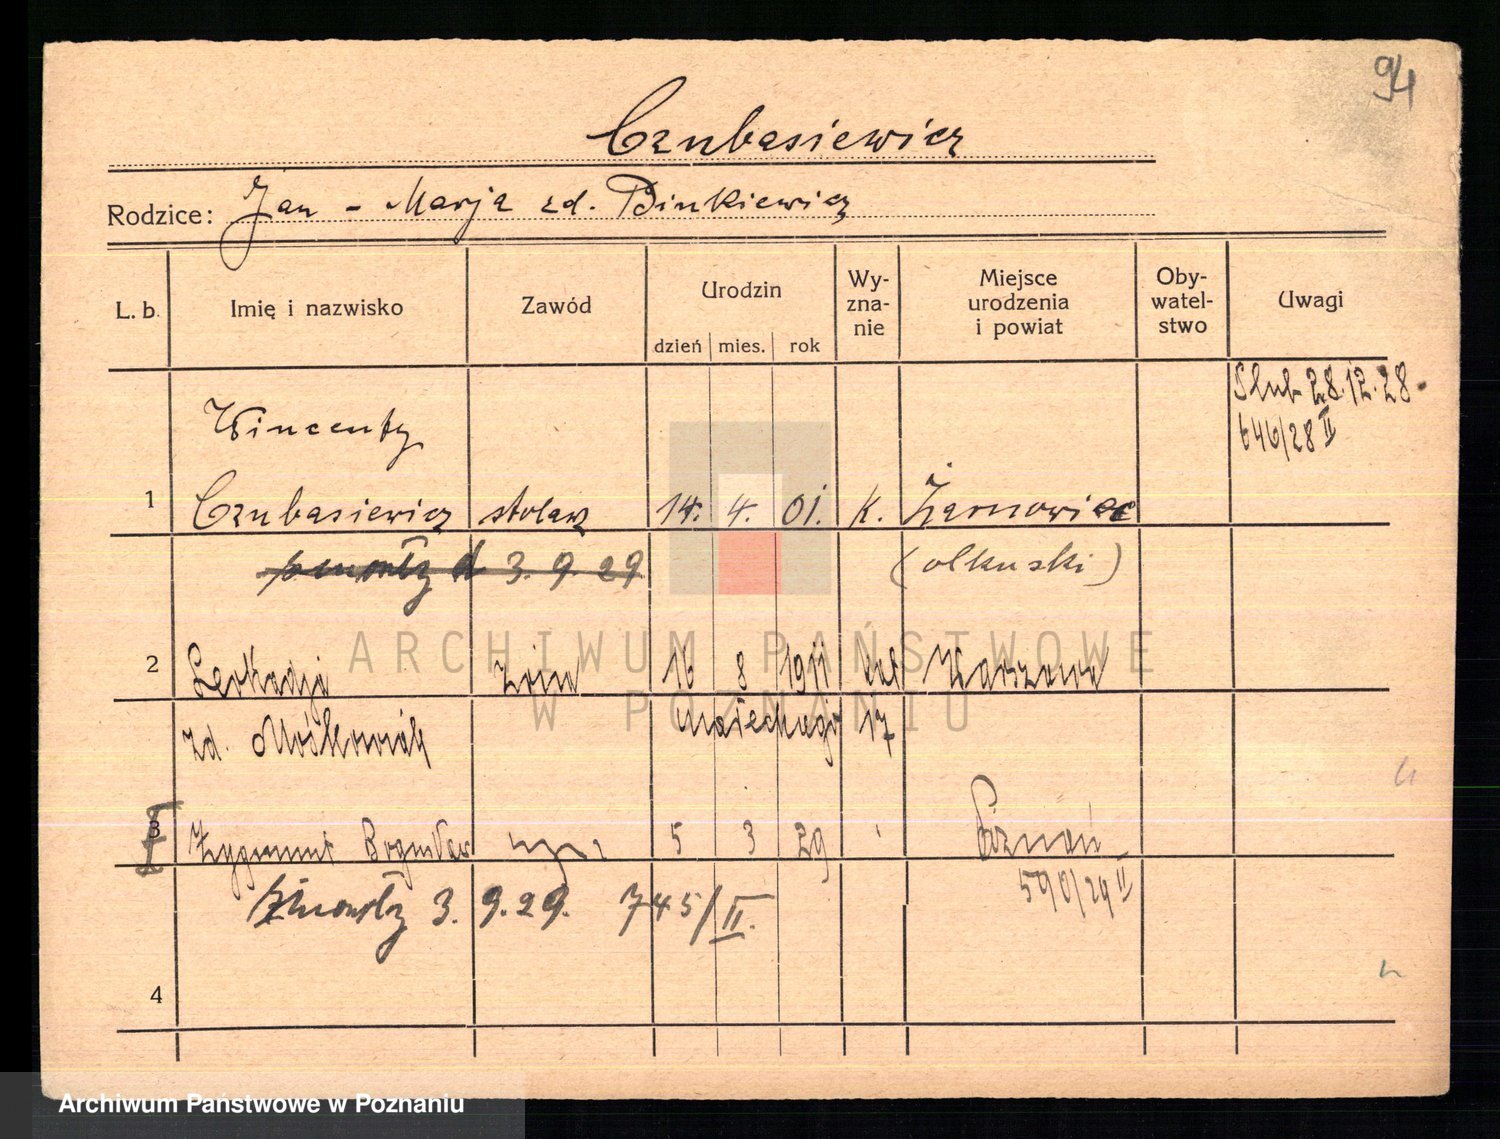 94
Czubasiewicz
Rodzice: Jan - Marja zd. Binkiewicz
L. b. Imię i nazwisko Zawód Urodzin dzień mies. rok Wy-zna-nie Miejsce urodzenia i powiat Oby-watel-stwo Uwagi
Ślub 28.12.28.
646/28 II
Wincenty
1 Czubasiewicz stolarz 14. 4. 01. k. Żarnowiec
zmarły d 3. 9. 29 (olkuski)
ARCHIWUM PAŃSTWOWE
2 Leokadja żona 16 8 1911 kat Warszawa
W POZNANIU
zd. Mośkowiak Małeckiego 17
3 Zygmunt Bogusław 5 3 29 Poznań
590/29 II
Zmarły 3. 9. 29. 745/II.
4
Archiwum Państwowe w Poznaniu